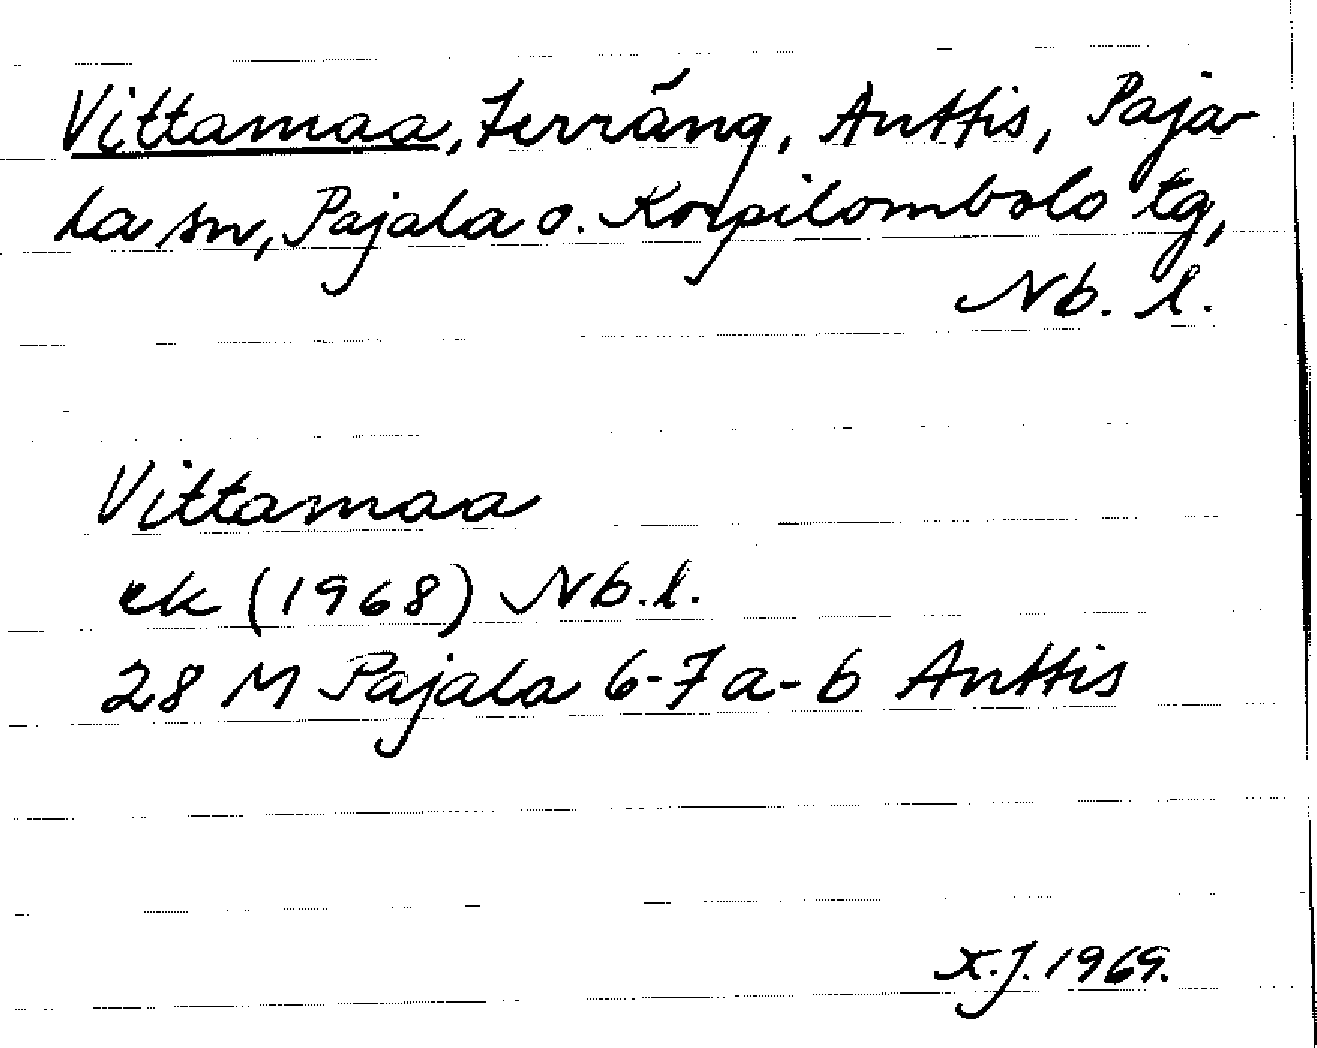 Vittamaa, Terräng, Anttis, Paja-
la sn, Pajala o. Korpilombolo tg,
Nb. l.
Vittamaa
ek (1968) Nb. l.
28 M Pajala 6-7 a-b Anttis
K.J. 1969.